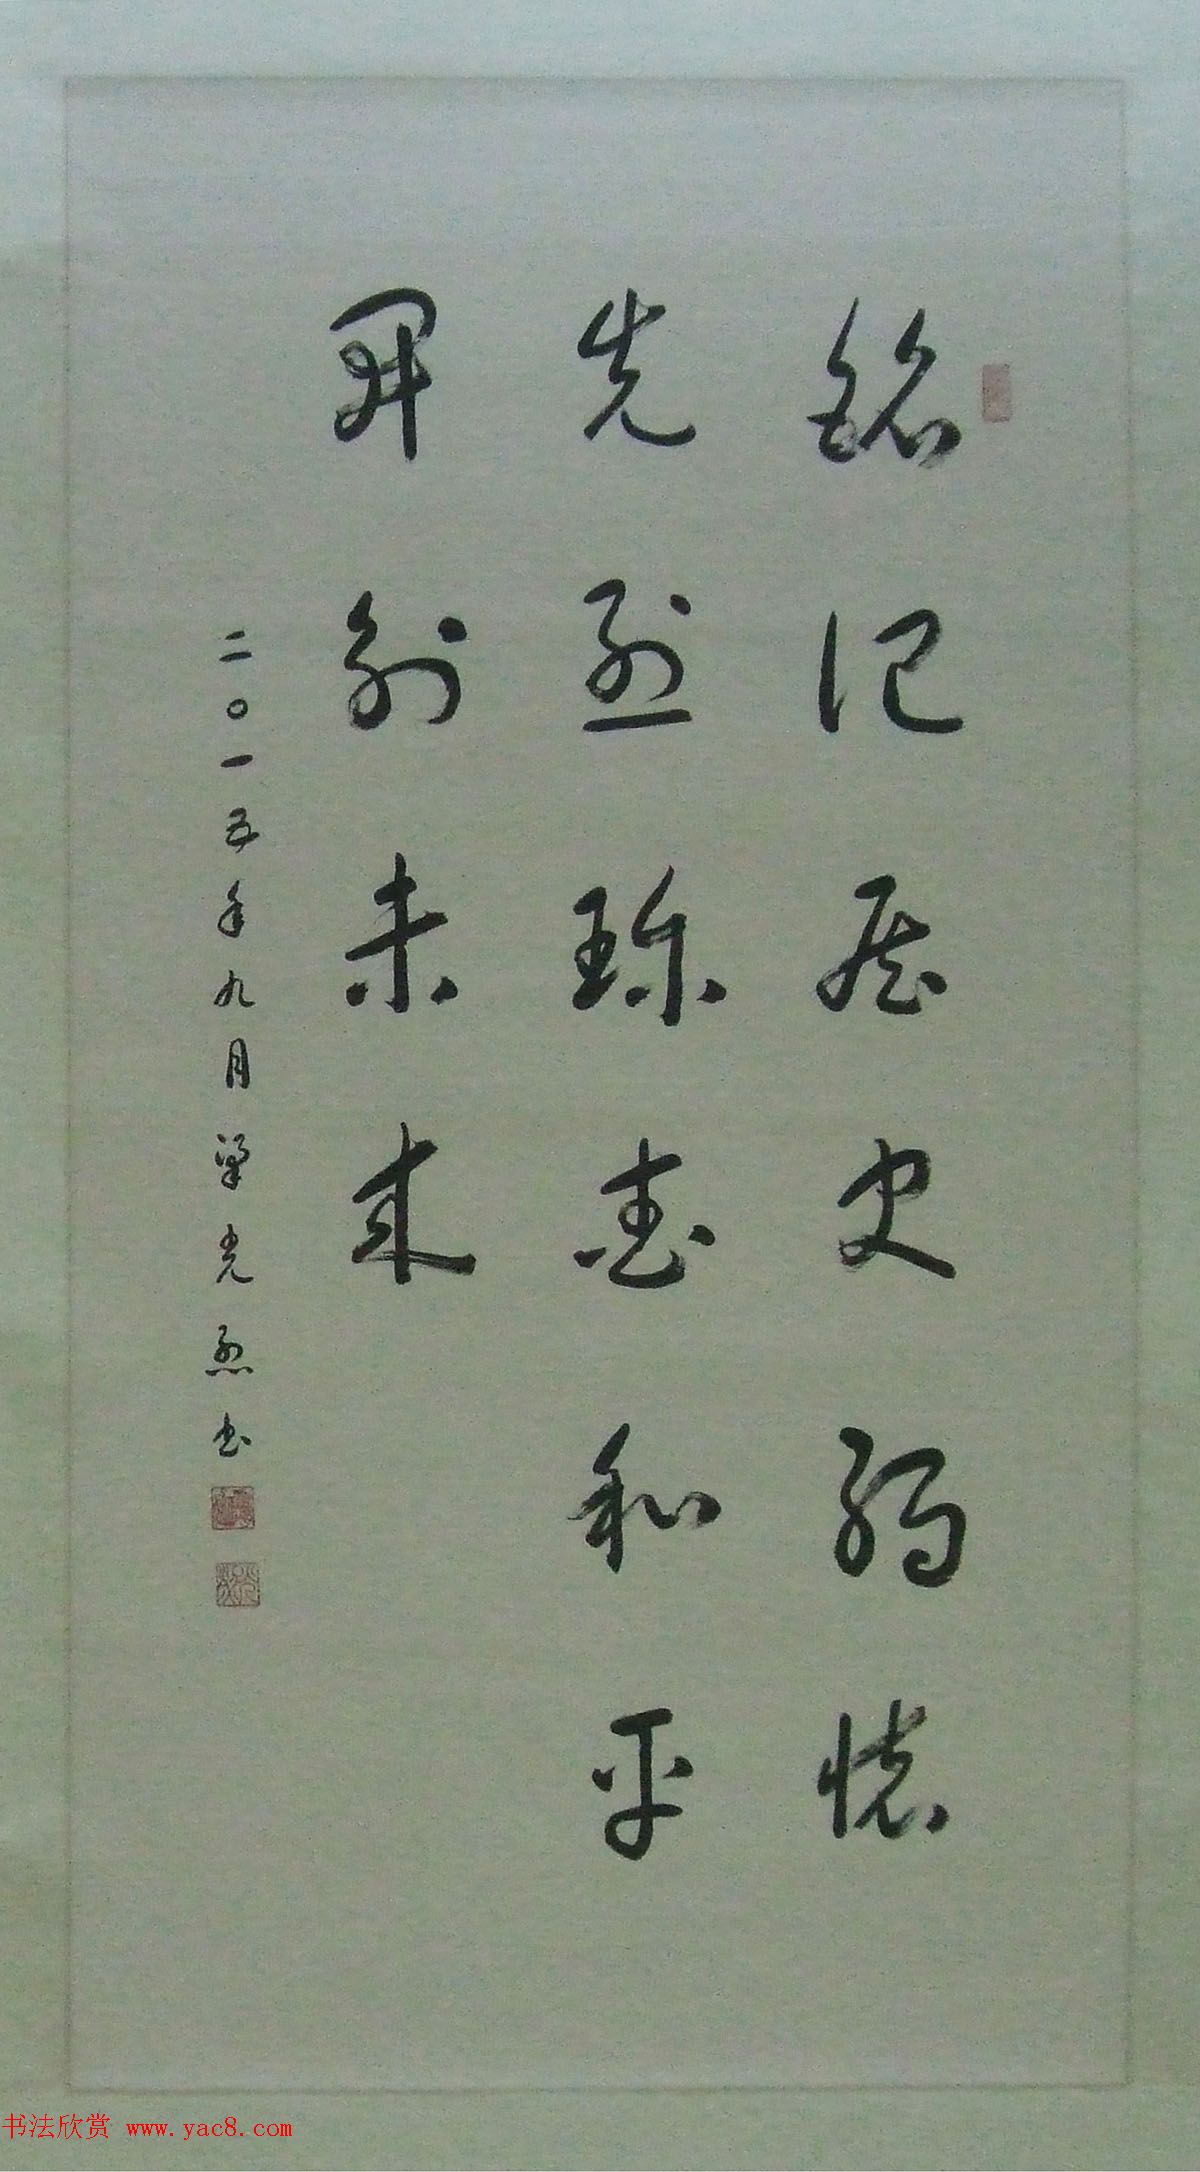 铭记历史缅怀
先烈珍爱和平
开创未来
二〇一五年九月梁光烈书
书法欣赏 www.yac8.com